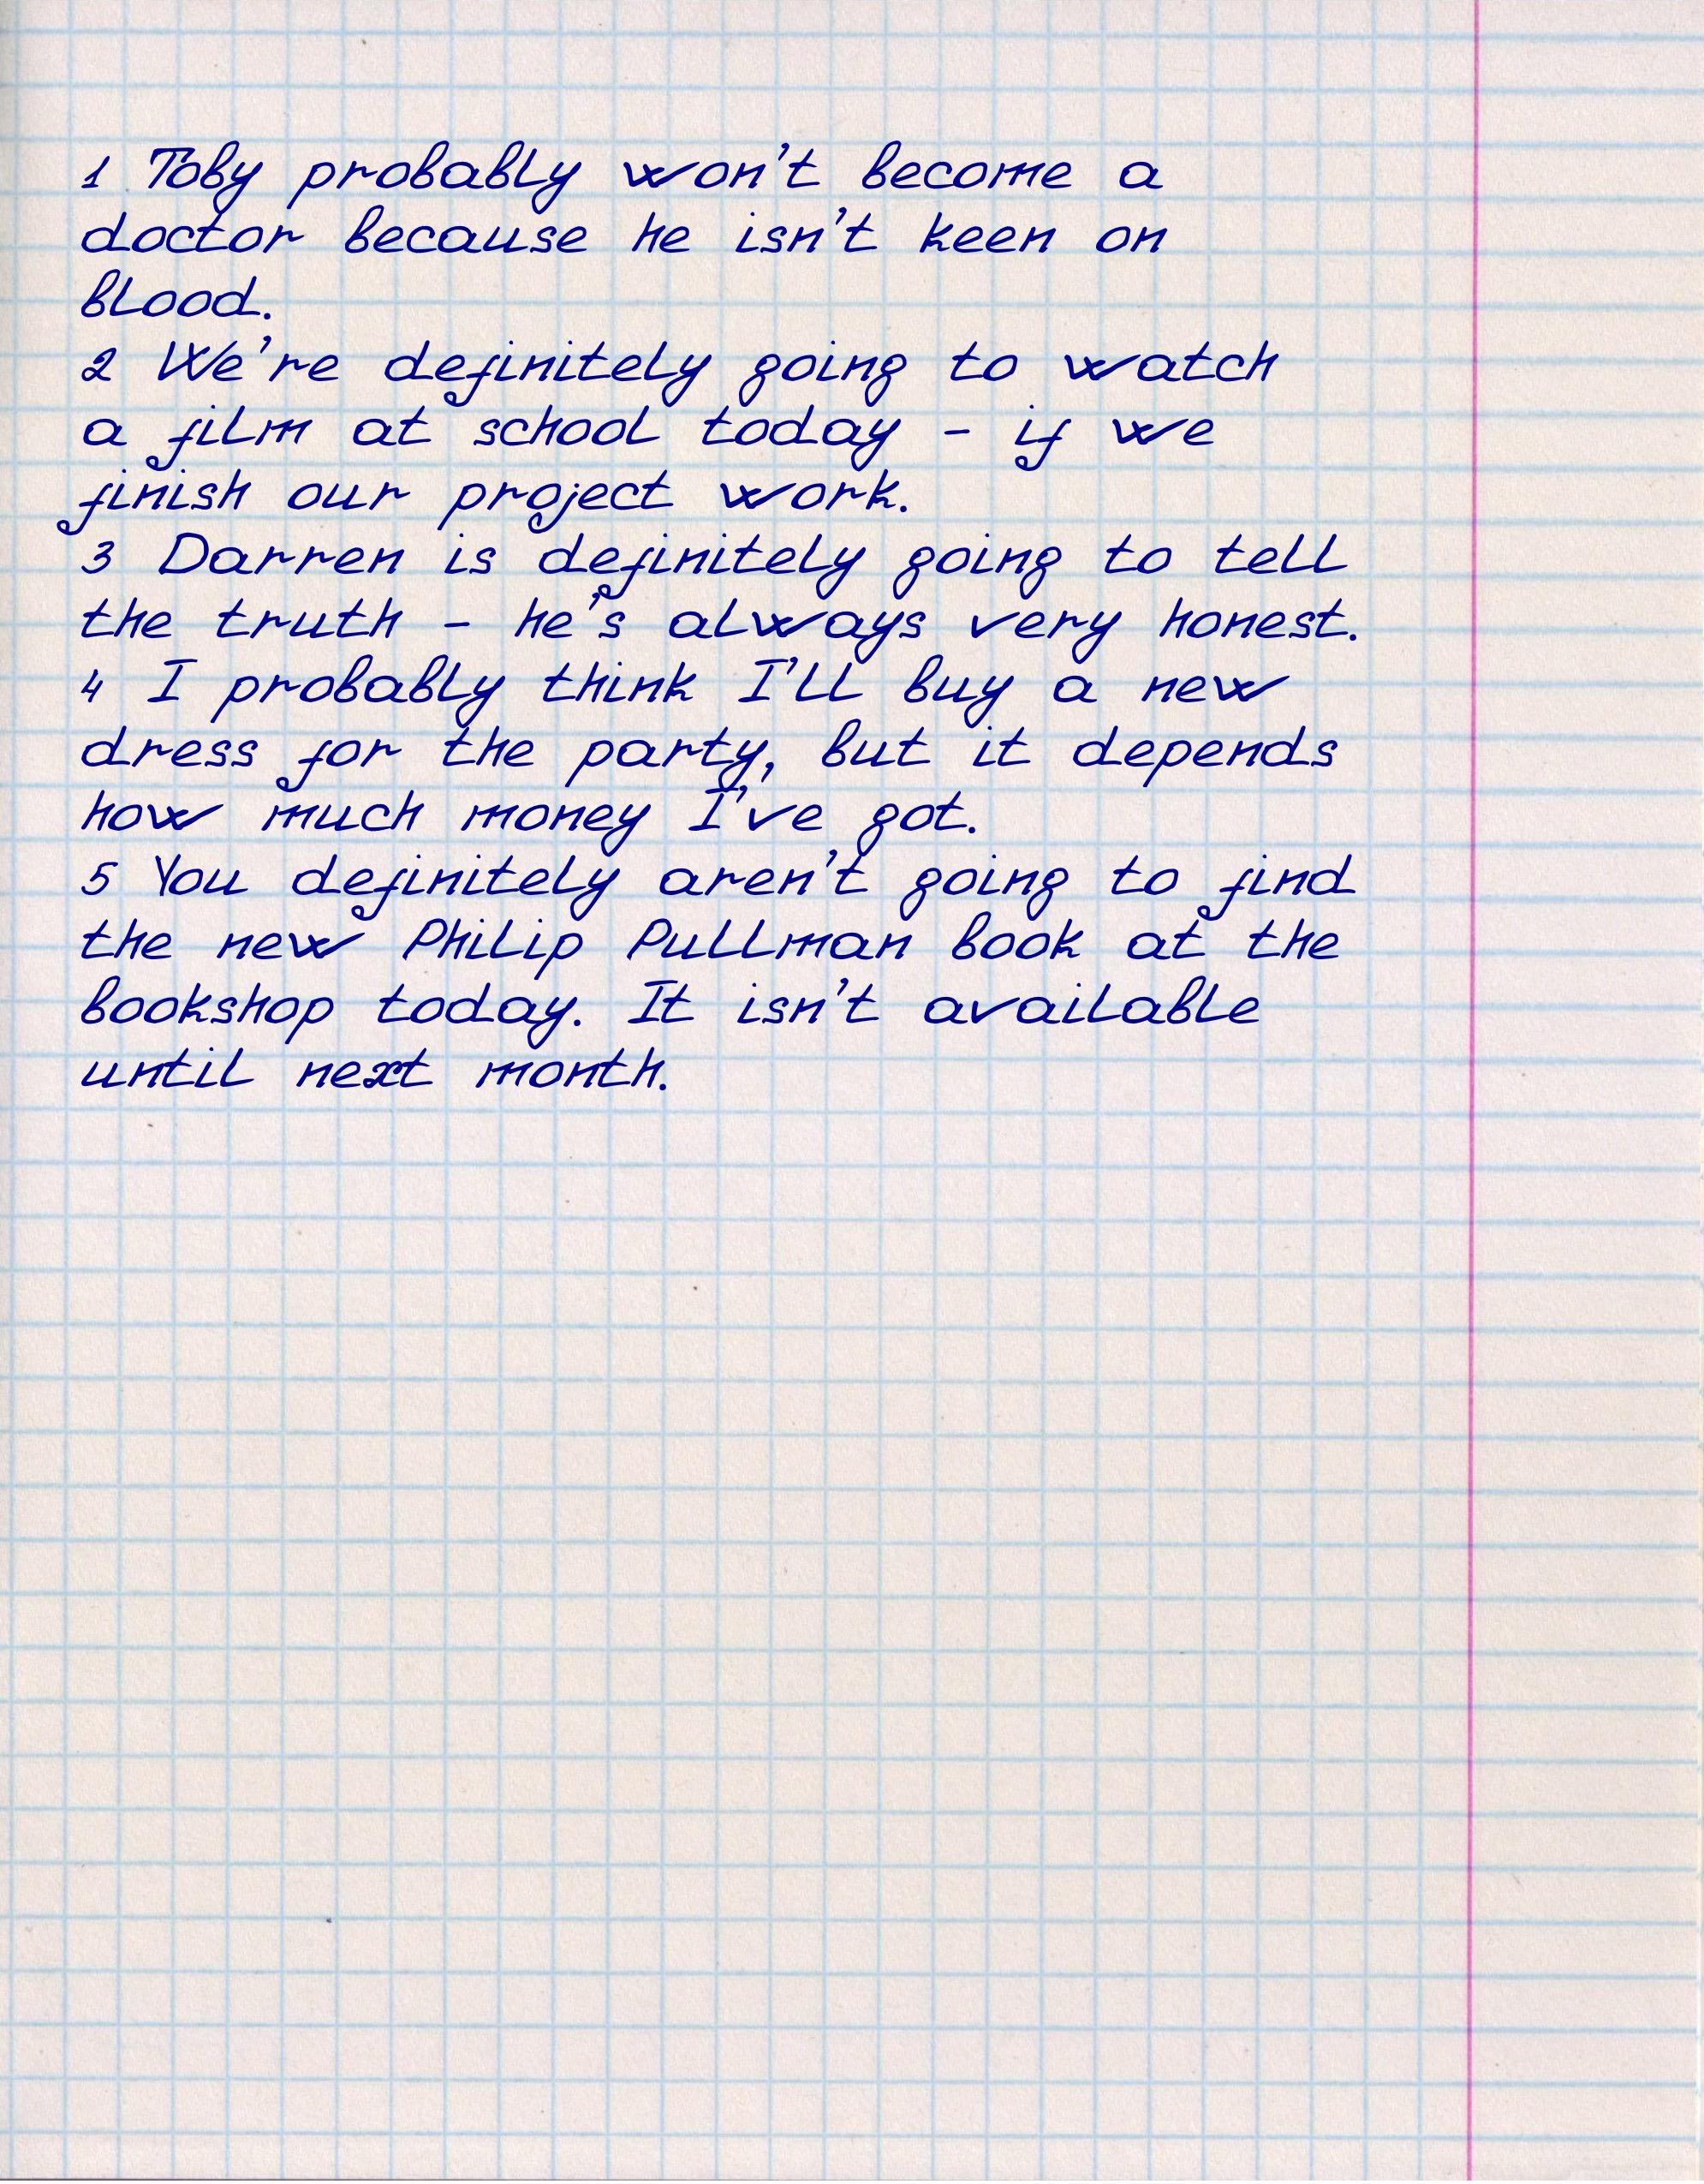 1 Toby probably won't become a
doctor because he isn't keen on
blood.
2 We're definitely going to watch
a film at school today - if we
finish our project work.
3 Darren is definitely going to tell
the truth - he's always very honest.
4 I probably think I'll buy a new
dress for the party, but it depends
how much money I've got.
5 You definitely aren't going to find
the new Philip Pullman book at the
bookshop today. It isn't available
until next month.